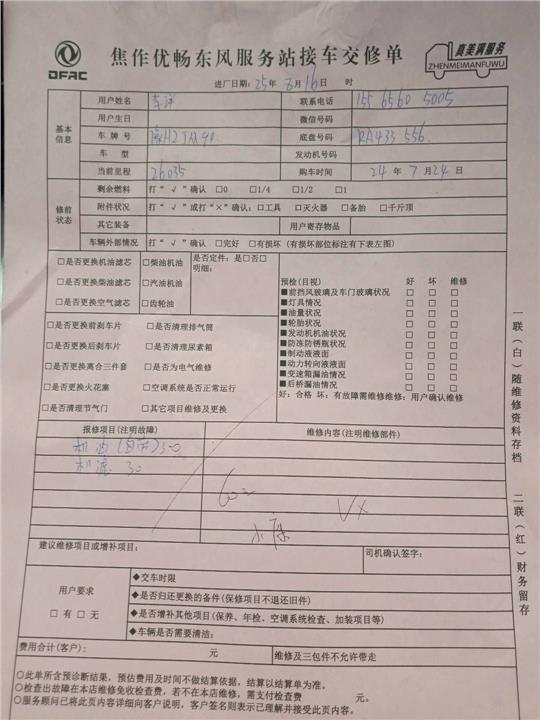 DFAC
焦作优畅东风服务站接车交修单
真美满服务
ZHENMEIMANFUWU
进厂日期：25年 6月16日 时
基本信息
用户姓名 联系电话 155 6560 5005
用户生日 微信号码
车牌号 底盘号码 RA433 556
车 型 发动机号码
当前里程 26035 购车时间 24年7月24日
修前状态
剩余燃料 打“√”确认 □0 □1/4 □1/2 □1
附件状况 打“√”或打“×”确认：□工具 □灭火器 □备胎 □千斤顶
其它装备 用户寄存物品
车辆外部情况 打“√”确认 □完好 □有损坏（有损坏部位标注有下表左图）
□是否更换机油滤芯 □柴油机油 是否定件：是□否□
明细：
□是否更换柴油滤芯 □汽油机油
□是否更换空气滤芯 □齿轮油
□是否更换前刹车片 □是否清理排气筒
□是否更换后刹车片 □是否清理尿素箱
□是否更换离合三件套 □是否为电气维修
□是否更换火花塞 □空调系统是否正常运行
□是否清理节气门 □其它项目维修及更换
预检（目视） 好 坏 维修
■前挡风玻璃及车门玻璃状况 □ □ □
■灯具情况 □ □ □
■油量状况 □ □ □
■轮胎状况 □ □ □
■发动机机油状况 □ □ □
■防冻防锈瓶状况 □ □ □
■制动液液面 □ □ □
■动力转向液液面 □ □ □
■变速箱漏油情况 □ □ □
■后桥漏油情况 □ □ □
好：合格 坏：有故障需维修维修：用户确认维修
报修项目（注明故障） 维修内容（注明维修部件）
机油（自带）30
机滤 30
602
VX
建议维修项目或增补项目： 司机确认签字：
用户要求
□有□无
◆交车时限
◆是否归还更换的备件（保修项目不退还旧件）
◆是否增补其他项目（保养、年检、空调系统检查、加装项目等）
◆车辆是否需要清洁：
费用合计（客户）： 元 维修及三包件不允许带走
○此单所含预诊断结果，预估费用及时间不做结算依据，结算以结算单为准。
○检查出故障在本店维修免收检查费，若不在本店维修，需支付检查费 元。
○服务顾问已将此页内容详细向客户说明，客户签名则表示已理解并接受此页内容。
一联（白）随维修资料存档
二联（红）财务留存